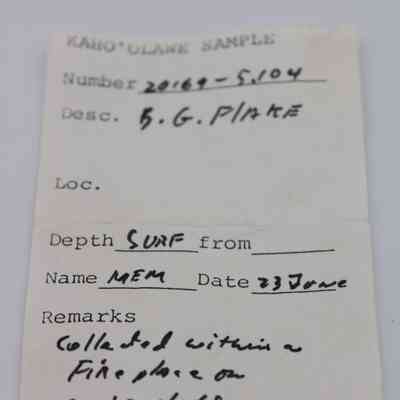 KAHO'OLAWE SAMPLE
Number 20169-5.104
Desc. B.G. Flake
Loc.
Depth SURF from
Name MEM Date 23 June
Remarks
Collected within a
Fire place on